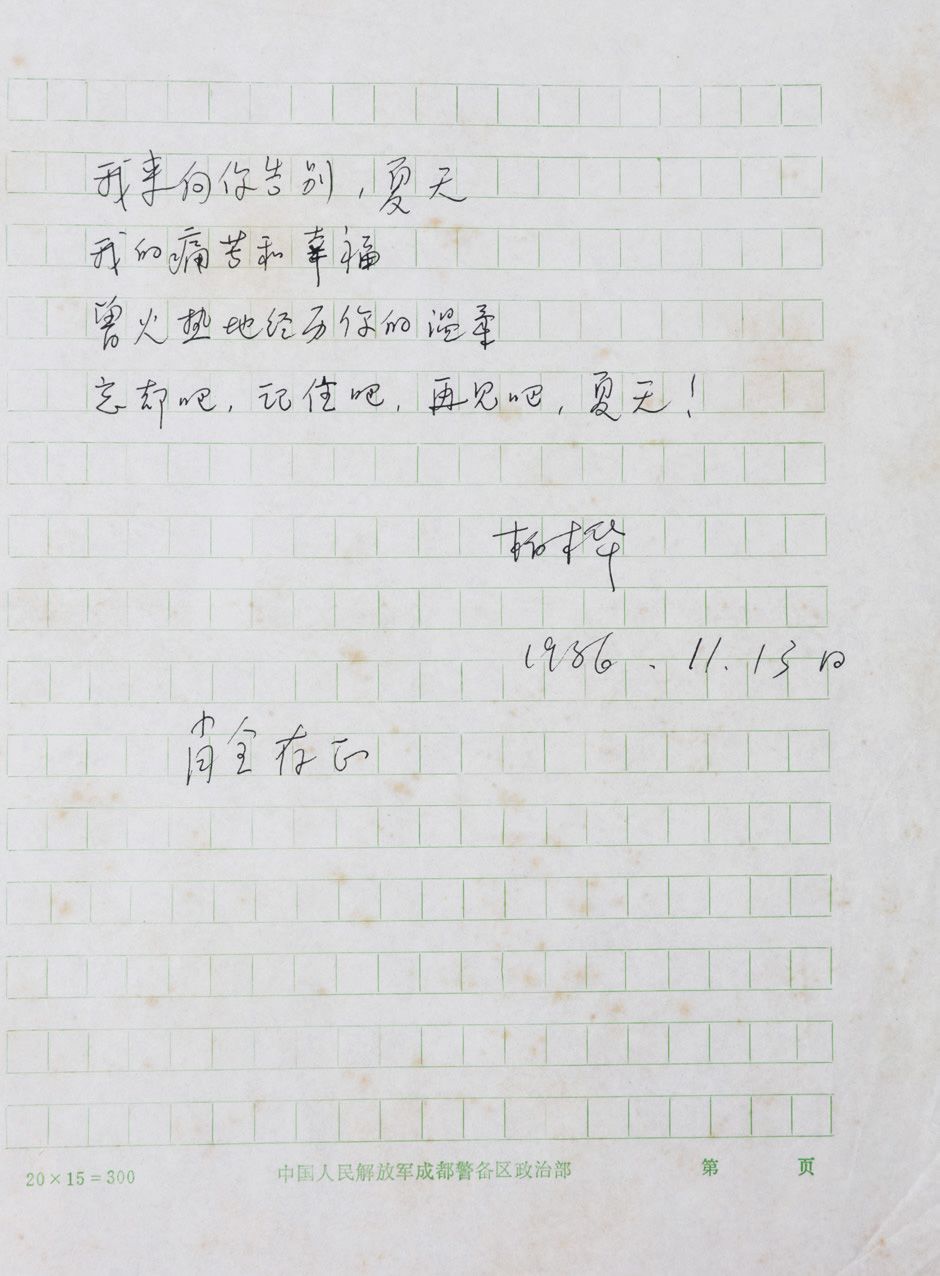 我来向你告别，夏天
我的痛苦和幸福
曾火热地经历你的温柔
忘却吧，记住吧，再见吧，夏天！
柏桦
1986.11.13日
肖全存正
20×15=300 中国人民解放军成都警备区政治部 第 页